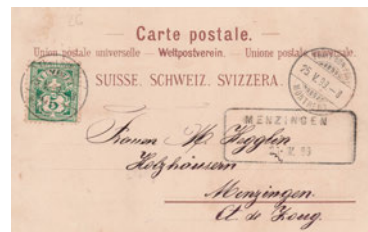 Carte postale.
Union postale universelle — Weltpostverein. — Unione postale universale.
SUISSE. SCHWEIZ. SVIZZERA.
5
25 V. 93 - 8
MENZINGEN
V. 93
Frauen Hegglin
Holzhäusern
Menzingen.
Ct de Zoug.